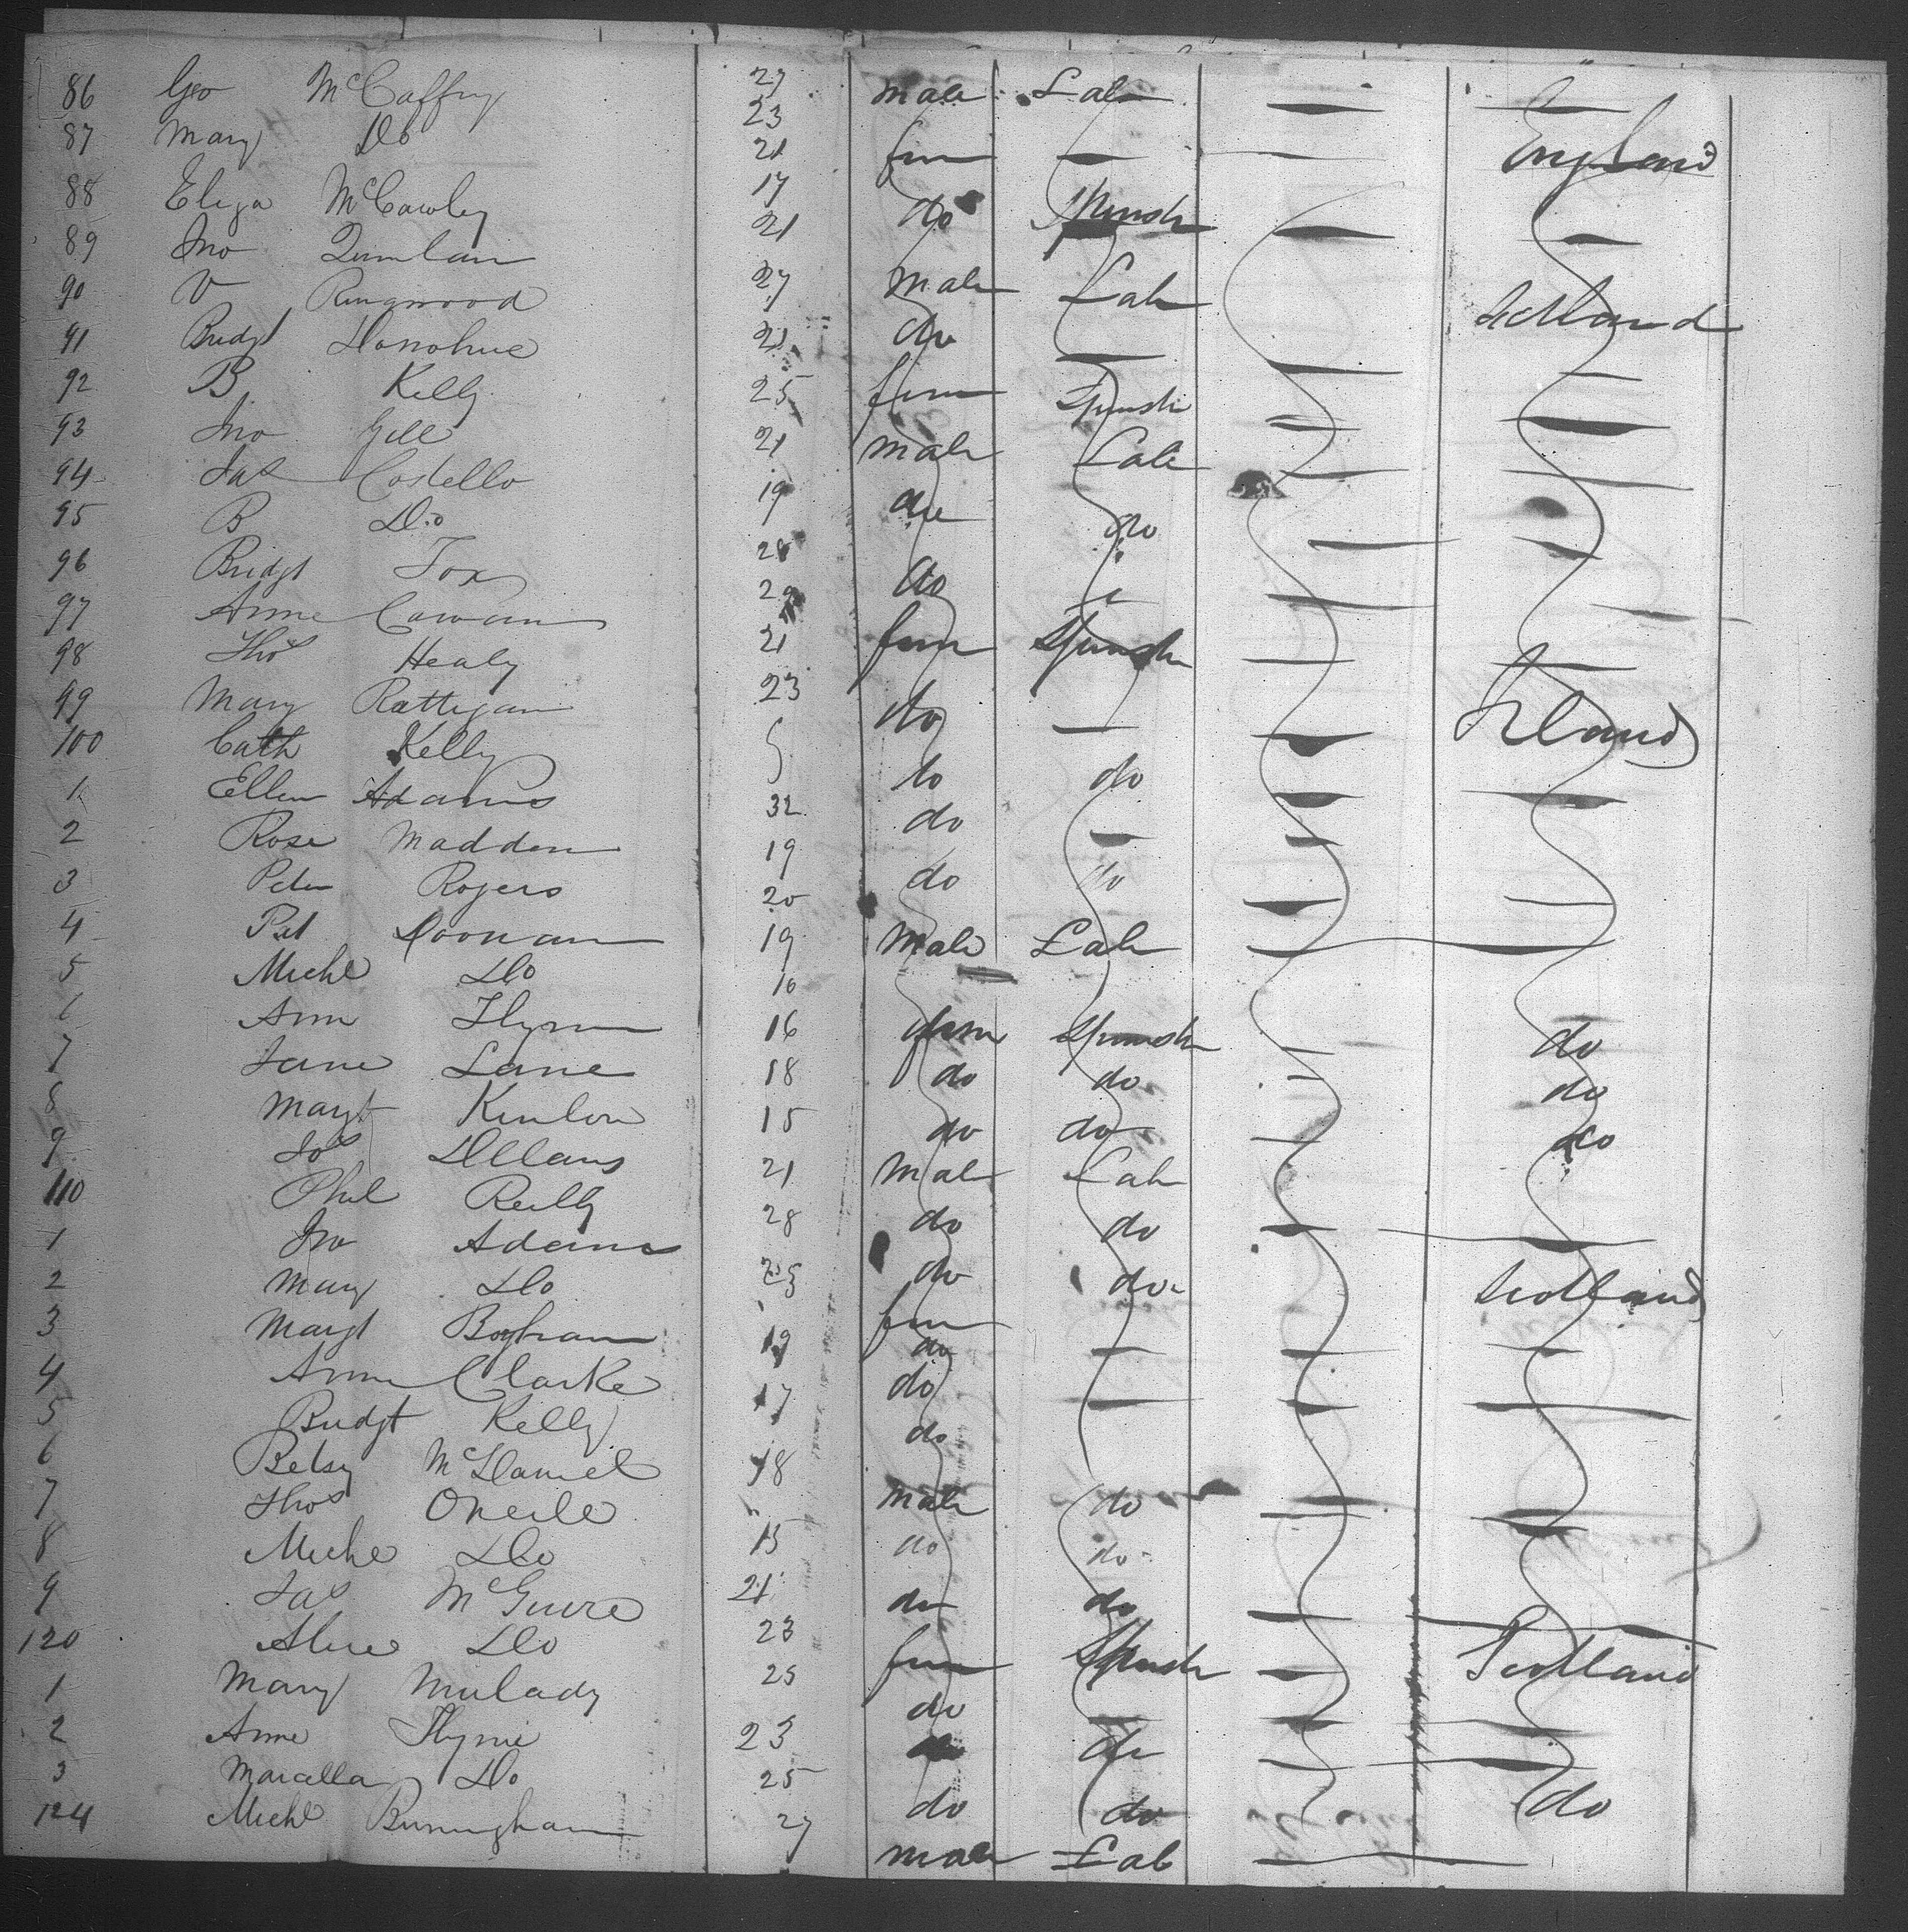 86 Geo McCaffry 27 male Lab
87 Mary Do 23 fem England
88 Eliza McCawley 21 do Spinstr
89 Jno Quinlan 17 male Lab
90 V Ringwood 21 do Scotland
91 Bridgt Donohue 27 fem Spinstr
92 B Kelly 21
93 Jno Gill 25 male Lab
94 Jas Costello 21 do do
95 B Do 19 do
96 Bridgt Fox 28 fem Spinstr
97 Anne Cowan 29
98 Thos Healy 21
99 Mary Rattigan 23 do Ireland
100 Cath Kelly do do
1 Ellen Adams 32 do
2 Rose Madden 19 do do
3 Peter Rogers 20 male Lab
4 Pat Doonan 19
5 Michl Do 16
6 Ann Flynn 16 fem Spinstr do
7 Jane Lane 18 do do do
8 Margt Kinlon 15 do do do
9 Jos 21 male Lab
110 Phil Reilly 28 do do
1 Jno Adams 25 do do Scotland
2 Mary Do fem
3 Margt 19 do
4 Anne Clarke 17 do
5 Bridgt Kelly do
6 Betsy McDaniel 18
7 Thos ONeile " male do
8 Michl Do 15 do do
9 Jas McGuire 21 do do
120 Alice Do 23 fem Spinstr Scotland
1 Mary Mulady 25 do
2 Anne Flynn 23 do
3 Marcella Do 25 do do do
124 Michl Burningham 27 male Lab